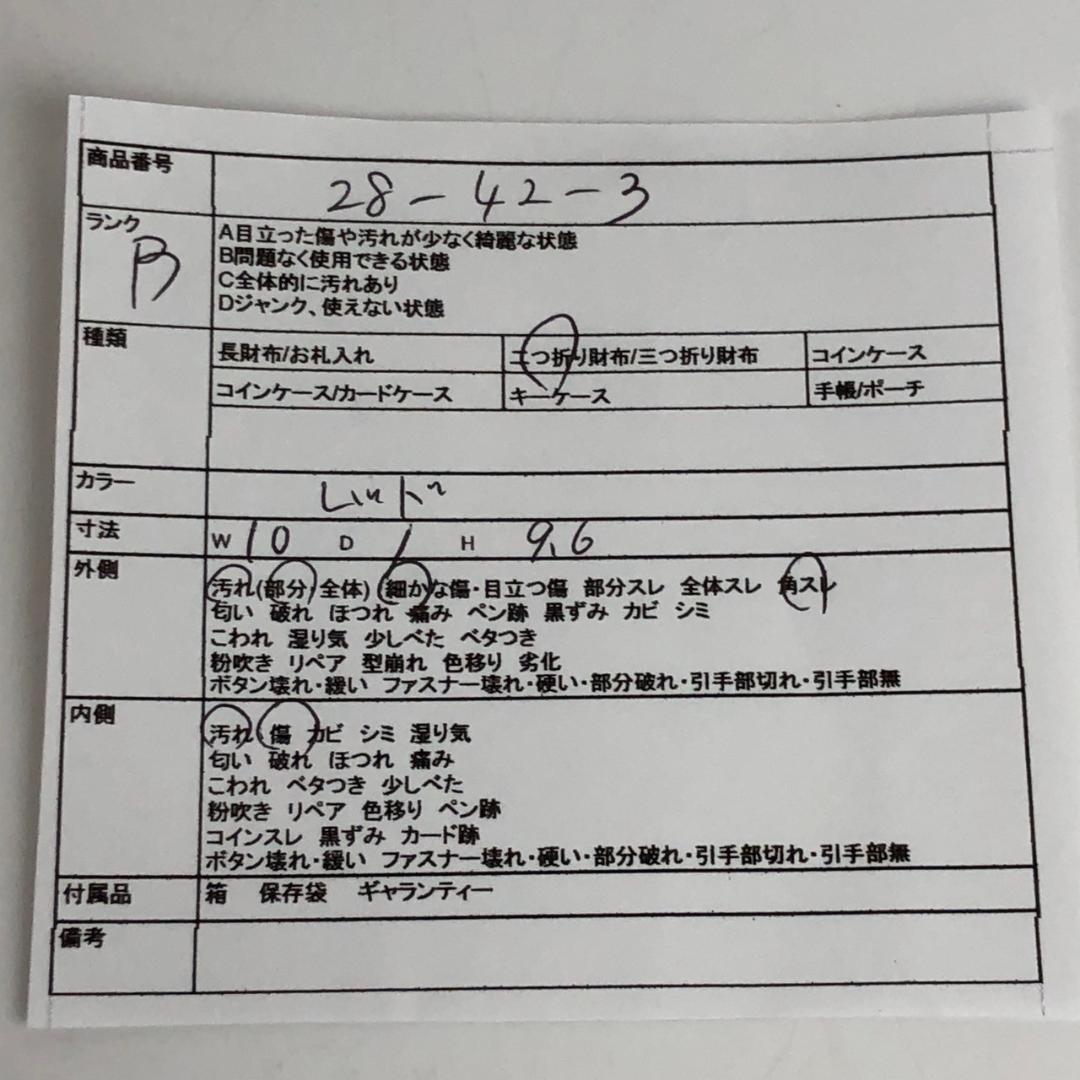 商品番号 28-42-3
ランク B
A目立った傷や汚れが少なく綺麗な状態
B問題なく使用できる状態
C全体的に汚れあり
Dジャンク、使えない状態
種類
長財布/お札入れ 二つ折り財布/三つ折り財布 コインケース
コインケース/カードケース キーケース 手帳/ポーチ
カラー レッド
寸法 W 10 D 1 H 9.6
外側
汚れ(部分/全体) 細かな傷・目立つ傷 部分スレ 全体スレ 角スレ
匂い 破れ ほつれ 痛み ペン跡 黒ずみ カビ シミ
こわれ 湿り気 少しべた ベタつき
粉吹き リペア 型崩れ 色移り 劣化
ボタン壊れ・緩い ファスナー壊れ・硬い・部分破れ・引手部切れ・引手部無
内側
汚れ 傷 カビ シミ 湿り気
匂い 破れ ほつれ 痛み
こわれ ベタつき 少しべた
粉吹き リペア 色移り ペン跡
コインスレ 黒ずみ カード跡
ボタン壊れ・緩い ファスナー壊れ・硬い・部分破れ・引手部切れ・引手部無
付属品 箱 保存袋 ギャランティー
備考